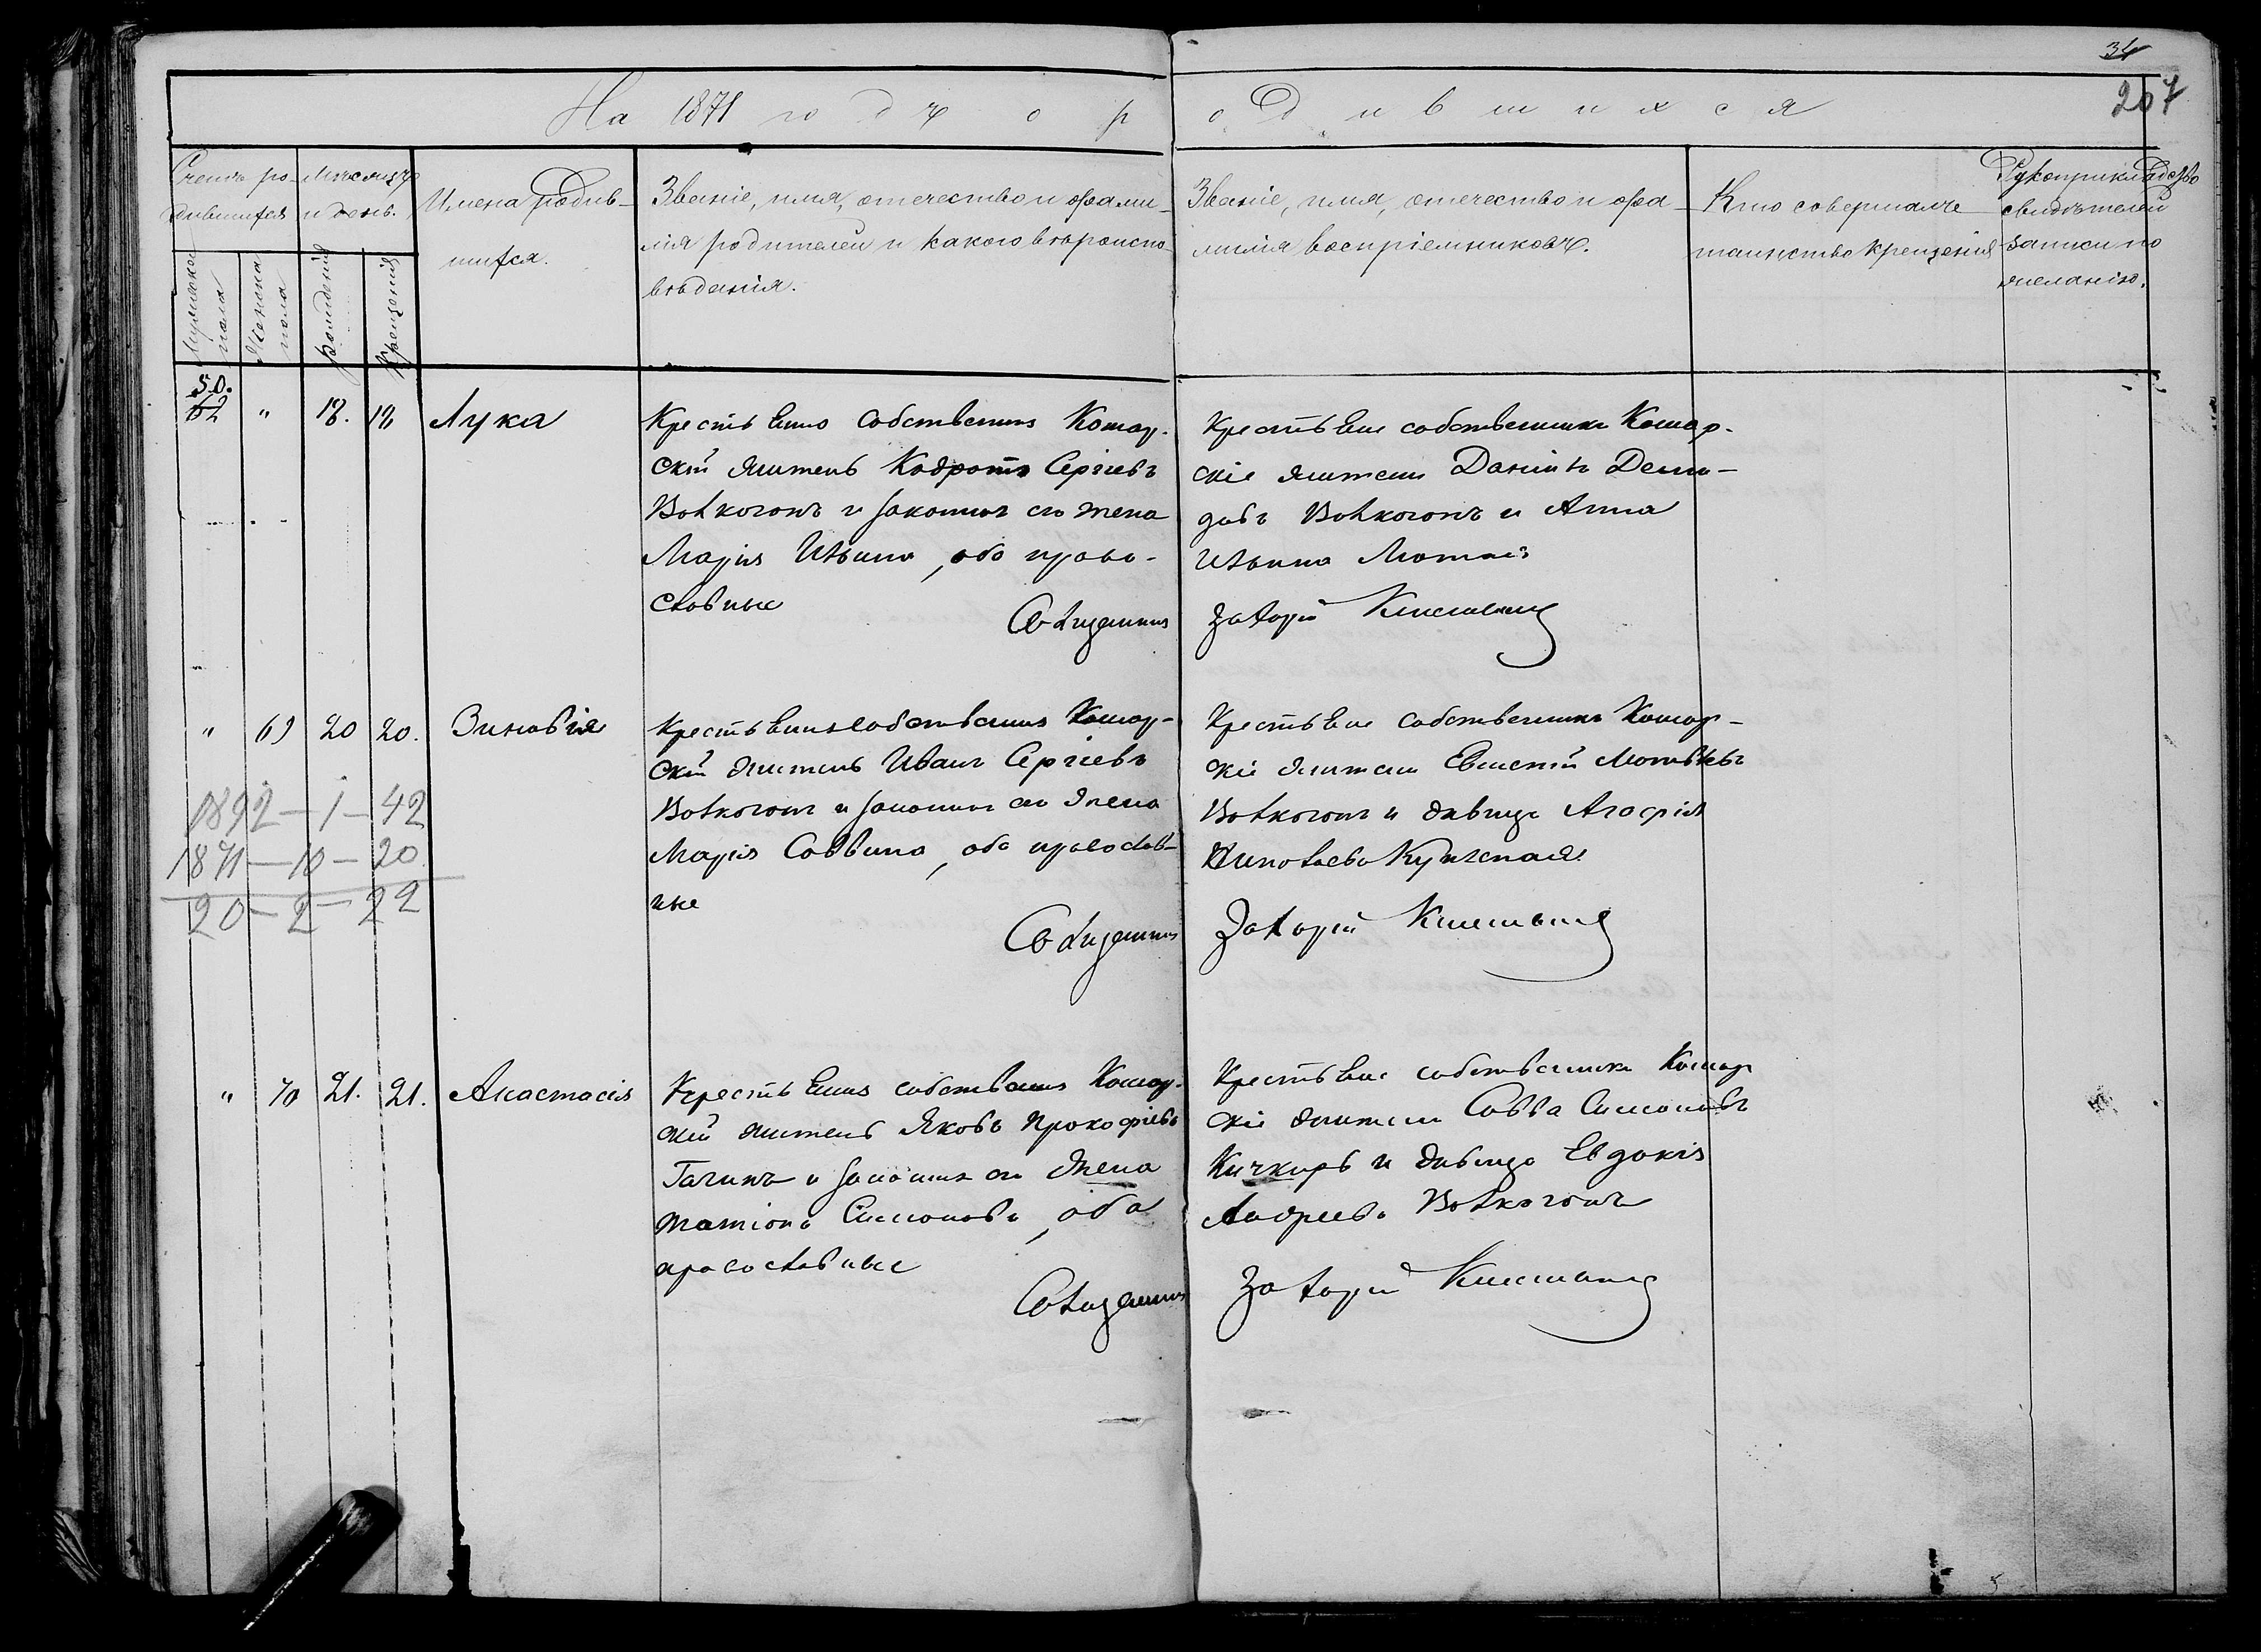 34
207
На 1871 годъ о родившихся
Счетъ ро-
дившихся
Мужеска
пола
Женска
пола
Мѣсяцъ
и день.
рожденія
Крещенія
Имена родив-
шихся.
Званіе, имя, отчество и фами-
лія родителей и какого вѣроиспо-
вѣданія.
Званіе, имя, отчество и фа-
милія воспріемниковъ.
Кто совершалъ
таинство крещенія
Рукоприкладство
свидѣтелей
записи по
желанію.
50.
62 " 18. 18 Лука
Крестьянинъ собственникъ Комар-
скій житель Кодратъ Сергіевъ
Волкогонъ и законная его жена
Марія Ильина, оба право-
славные
Крестьяне собственники Комар-
скіе жители Даніилъ Деми-
довъ Волкогонъ и Анна
Ильина
Священникъ Захарій
" 69 20 20. Зиновія
Крестьянинъ собственникъ Комар-
скій житель Иванъ Сергіевъ
Волкогонъ и законная его жена
Марія Саввина, оба православ-
ные
Крестьяне собственники Комар-
скіе жители Евсигній Матвѣевъ
Волкогонъ и дѣвица Агафія
Николаева
Священникъ Захарій
1892 - 1 - 42
1871 - 10 - 20
20 - 2 - 22
" 70 21. 21. Анастасія
Крестьянинъ собственникъ Комар-
скій житель Яковъ Прокофіевъ
Галичъ и законная его жена
Татіана Симонова, оба
православные
Крестьяне собственники Комар
скіе жители Савва Симоновъ
Кичкирь и дѣвица Евдокія
Андреева Волкогонъ
Священникъ Захарій